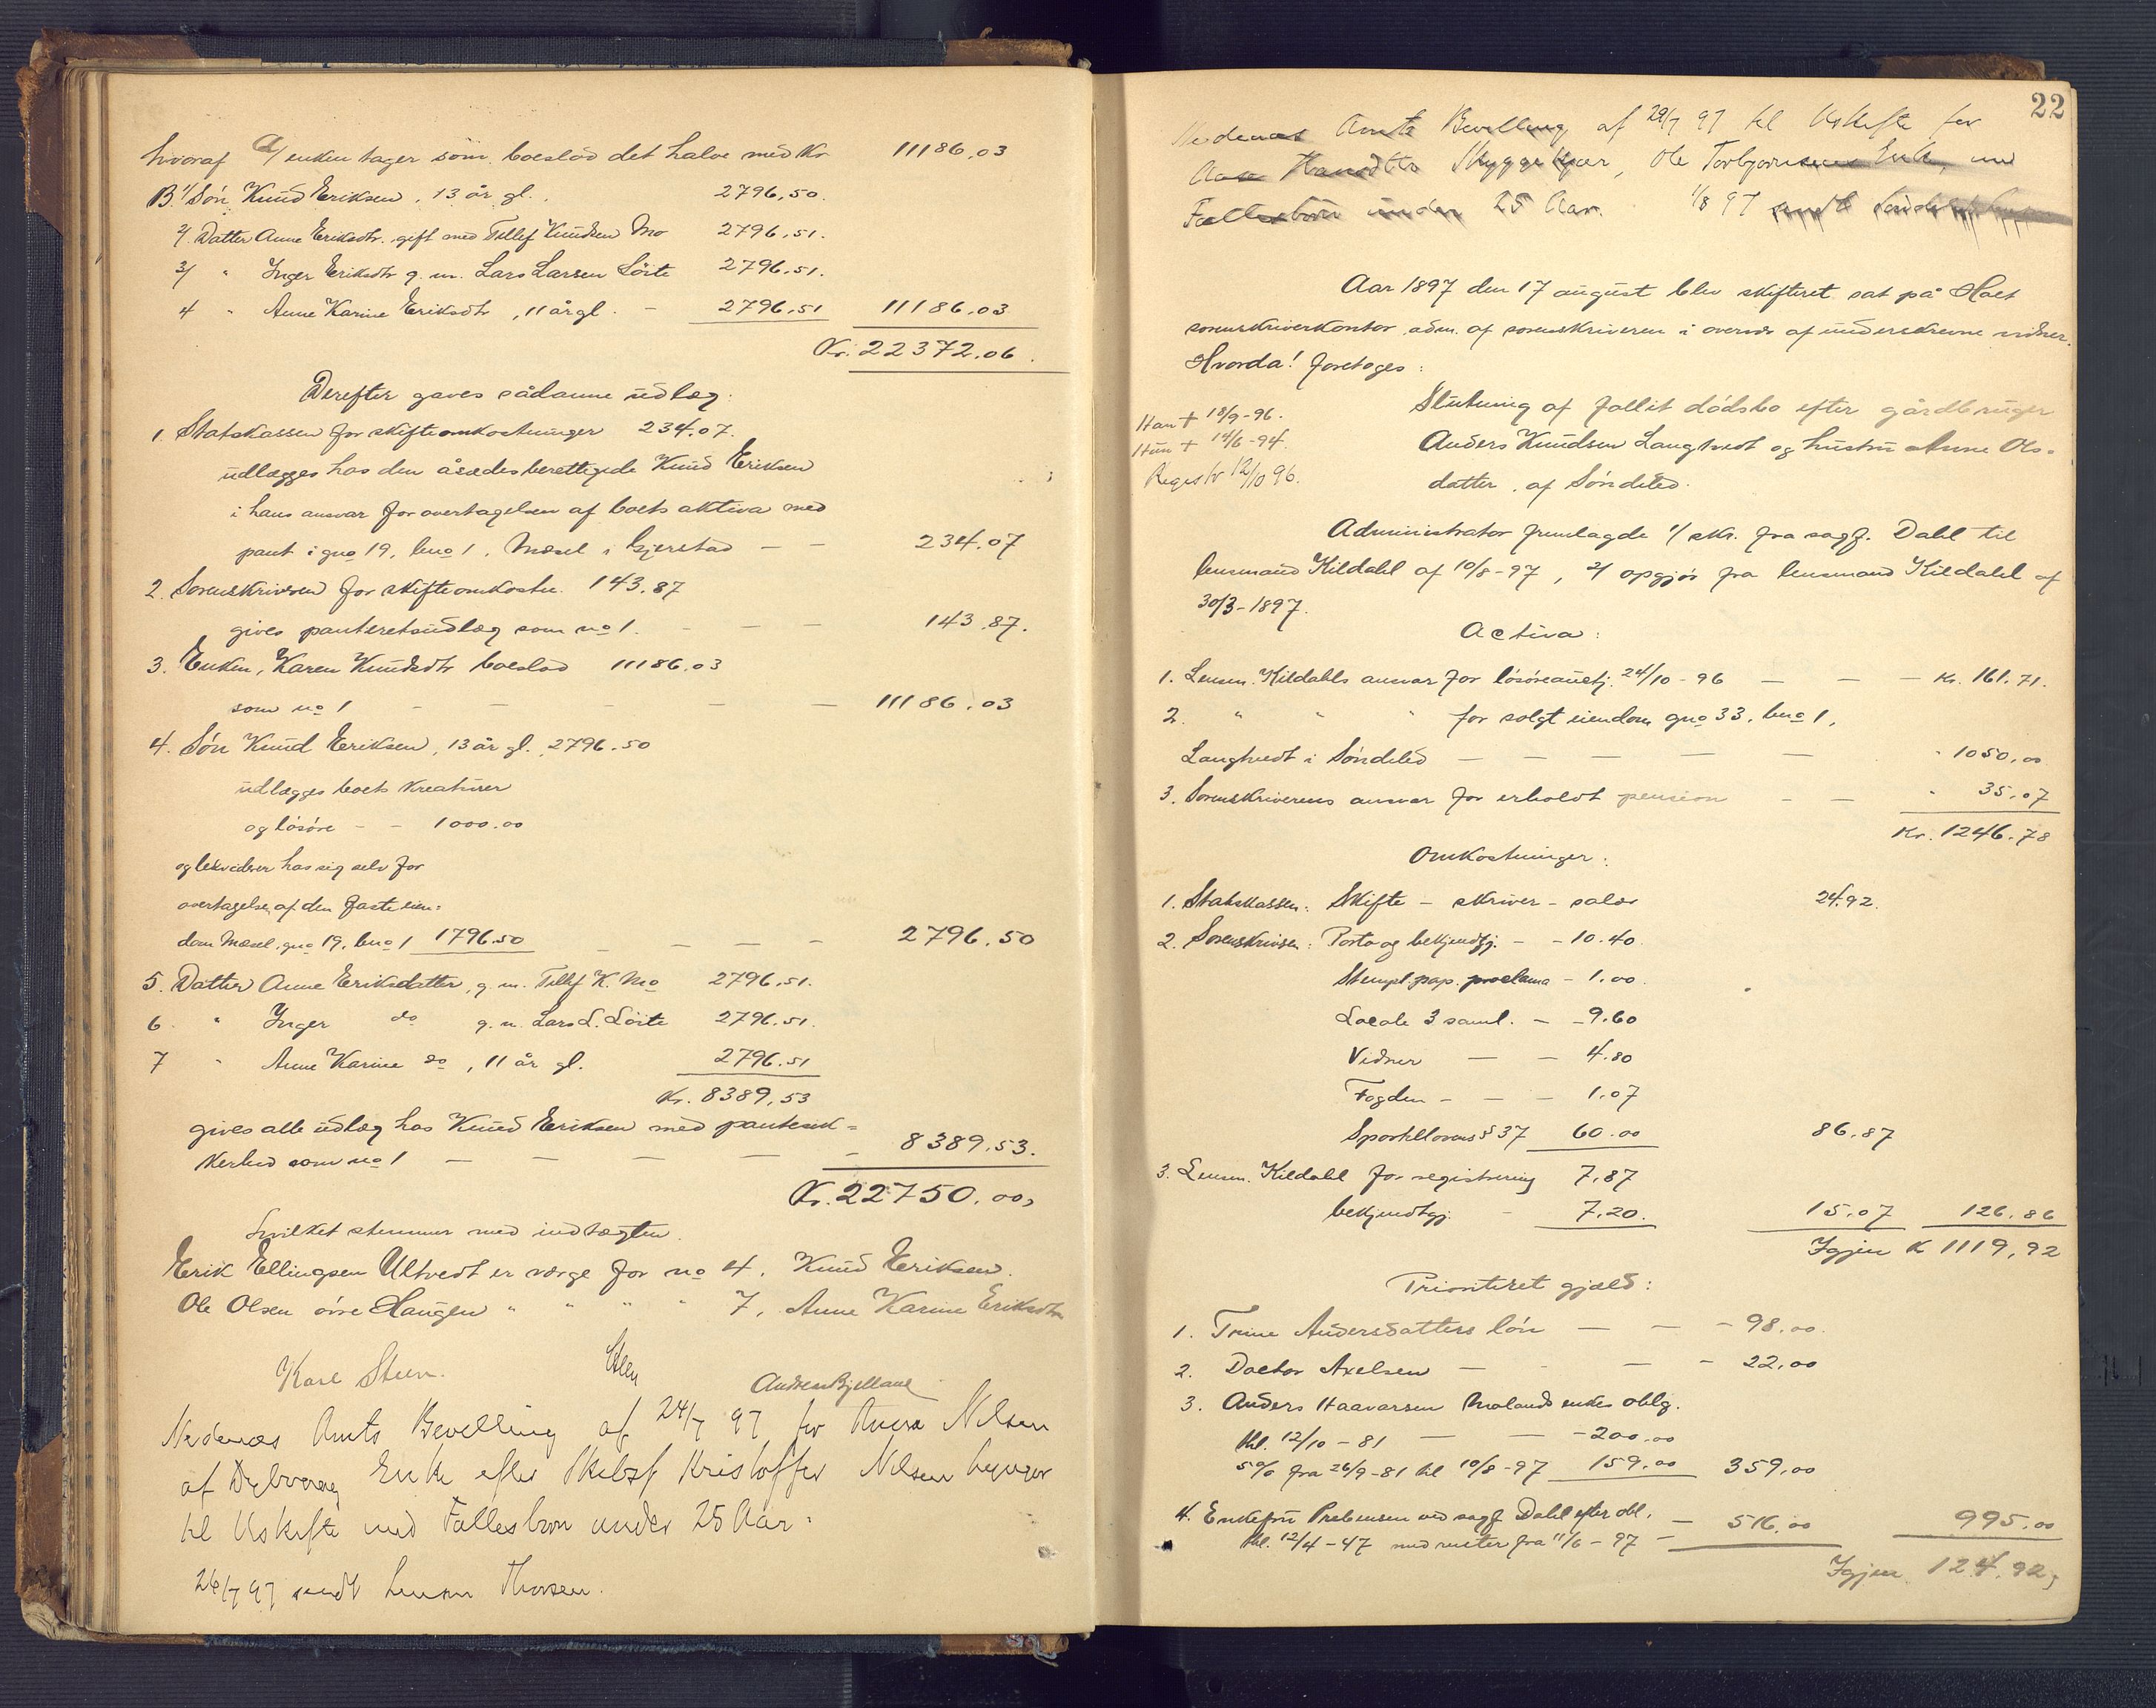 hvoraf A/ enken tager som boeslod det halve med Kr 11186,03
B. 1/ Søn Knud Eriksen, 13 år gl. 2796,50.
2/ Datter Anne Eriksdtr. gift med Tellef Knudsen Mo 2796,51.
3/ " Inger Eriksdtr g. m. Lars Larsen Löite 2796,51.
4 " Anne Karine Eriksdtr, 11 år gl. - 2796,51 11186,03
Kr. 22372,06.
Derefter gaves sådanne udlæg:
1. Statskassen for skifteomkostninger 234.07.
udlægges hos den åsædesberettigede Knud Eriksen
i hans ansvar for overtagelsen af boets aktiva med
pant i gno 19, bno 1, Mæsel i Gjerstad - - 234.07
2. Sorenskriveren for skifteomkostn. 143.87
gives panteretsudlæg som no 1. - - - 143.87.
3. Enken, Karen Knudsdtr boeslod 11186.03
som no 1 - - - - - 11186.03
4. Søn Knud Eriksen, 13 år gl. 2796.50
udlægges boets kreaturer
og løsøre - - 1000.00
og likviderer hos sig selv for
overtagelse af den faste eien=
dom Mæsel, gno 19, bno 1 1796.50 - - - - 2796.50
5. Datter Anne Eriksdatter, g. m. Tellf K. Mo 2796.51.
6. " Inger do g. m. Lars L. Löite 2796.51.
7 " Anne Karine do, 11 år gl. 2796.51
Kr. 8389.53
gives alle udlæg hos Knud Eriksen med pantesik=
kerhed som no 1 - - - - - 8389.53.
Kr. 22750.00,
hvilket stemmer med indtægten.
Erik Ellingsen Ultvedt er værge for no 4, Knud Eriksen.
Ole Olsen øvre Haugen " " " " 7, Anne Karine Eriksdtr
Karl Steen. Andreas Bjelland
Nedenæs Amts Bevilling af 24/7 97 for Anna Nilsen
af Dybvaag Enke efter Skibsf Kristoffer Nilsen
til Uskifte med Fællesbørn under 25 Aar.
26/7 97 sendt Lensm Thorsen.
22
Nedenæs Amts Bevilling af 29/7 97 til Uskifte for
Aase Skyggekjær, Ole Torbjørnsens Enke, med
Fællesbørn under 25 Aar. 1/8 97 sendt
Aar 1897 den 17 august blev skifteret sat på Holt
sorenskriverkontor adm. af sorenskriveren i overvær af underskrevne vidner.
Hvorda! foretoges:
Han † 18/9-96.
Hun † 14/6-94.
Registr 12/10 96.
Slutning af fallit dødsbo efter gårdbruger
Anders Knudsen Langtvedt og hustru Anne Ols=
datter, af Søndeled.
Administrator fremlagde 1/ skr. fra sagf. Dahl til
lensmand Kildahl af 10/8-97, 2/ opgjør fra lensmand Kildahl af
30/3-1897.
Activa:
1. Lensm. Kildahls ansvar for løsøreauctj. 24/10-96 - - - Kr. 161.71.
2. " " " for solgt eiendom gno 33, bno 1,
Langtvedt i Søndeled - - - - - " 1050.00
3. Sorenskriverens ansvar for erholdt pension - - " 35.07
Kr. 1246.78
Omkostninger:
1. Statskassen: Skifte - skriver - salær 24.92.
2. Sorenskriven: Porto og bekjendtgj. - - 10.40
Stempl. pap. proclama - 1.00
Locale 3 saml. - - 9.60
Vidner - - 4.80
Fogden - - - 1.07
Sportellovens § 37 60.00 86.87
3. Lensm. Kildahl for registrering 7.87
bekjendtgj. - 7.20. 15.07 126.86
Igjen K 1119,92
Prioriteret gjæld:
1. Trine Andersdatters løn - - - 98.00.
2. Doctor Axelsen - - - - 22.00
3. Anders Haavorsen Molands enkes oblg.
thl. 12/10-81 - - - 200.00
5% fra 26/9-81 til 10/8-97 159.00 359.00
4. Enkefru Prebensen ved sagf. Dahl efter obl.
thl. 12/4-47 med renter fra 11/6-97 - 516.00 995.00
Igjen 124.92,